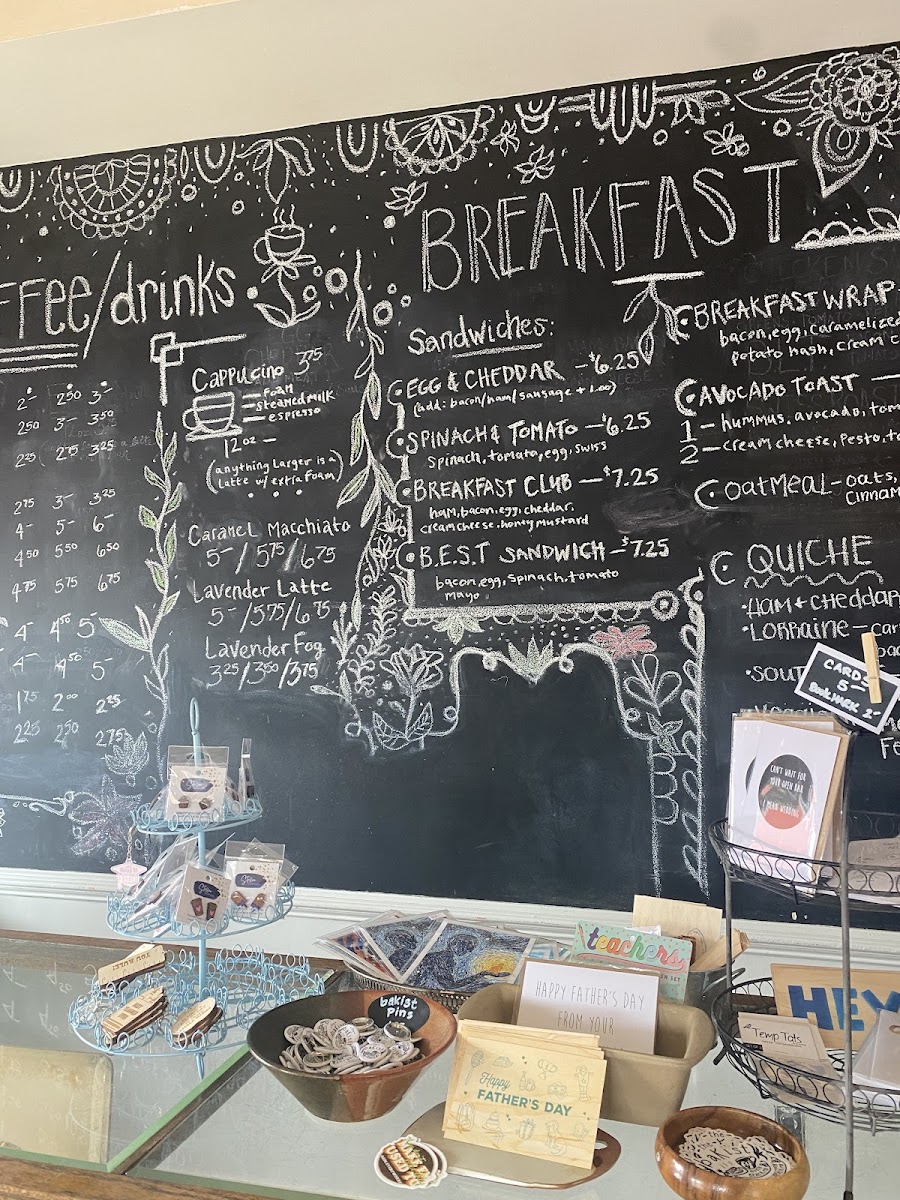 FFee/drinks
2- 2⁵⁰ 3-
2⁵⁰ 3- 3⁵⁰
2²⁵ 2⁷⁵ 3²⁵
2⁷⁵ 3- 3²⁵
4- 5- 6-
4⁵⁰ 5⁵⁰ 6⁵⁰
4⁷⁵ 5⁷⁵ 6⁷⁵
4- 4⁵⁰ 5-
4- 4⁵⁰ 5-
1⁷⁵ 2⁰⁰ 2²⁵
2²⁵ 2⁵⁰ 2⁷⁵
Cappucino 3⁷⁵
— FOAM
— steamed milk
— espresso
12oz —
(anything Larger is a
Latte w/ extra Foam)
Caramel Macchiato
5-/5⁷⁵/6⁷⁵
Lavender Latte
5-/5⁷⁵/6⁷⁵
Lavender Fog
3²⁵/3⁵⁰/3⁷⁵
BREAKFAST
Sandwiches:
EGG & CHEDDAR — $6.25
(add: bacon/ham/sausage + 1.00)
SPINACH & TOMATO — $6.25
spinach, tomato, egg, swiss
BREAKFAST CLUB — $7.25
ham, bacon, egg, cheddar,
cream cheese, honey mustard
B.E.S.T SANDWICH — $7.25
bacon, egg, spinach, tomato
mayo
BREAKFAST WRAP -
bacon, egg, caramelized
potato hash, cream c
AVOCADO TOAST —
1 — hummus, avocado, tom
2 — cream cheese, pesto, to
OATMEAL - oats,
cinnam
QUICHE
• HAM + CHEDDAR
• LORRAINE — car
• SOUT
Fe
CARDS
5-
BOOKMARK 2-
CAN'T WAIT FOR
YOUR OPEN BAR
I MEAN WEDDING
teachers
bakist
pins
HAPPY FATHER'S DAY
FROM YOUR
HEY
Temp Tats
Happy
FATHER'S DAY